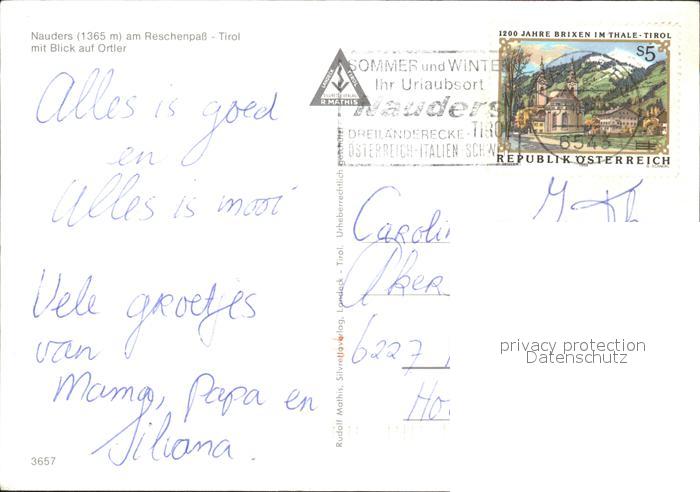 Nauders (1365 m) am Reschenpaß - Tirol
mit Blick auf Ortler
Alles is goed
en
Alles is mooi
Vele groetjes
van
Mama, Papa en
Siliana.
3657
Rudolf Mathis, Silvretaverlag, Landeck - Tirol. Urheberrechtlich geschützt
R MATHIS
SOMMER und WINTER
Ihr Urlaubsort
Nauders
DREILÄNDERECKE - TIROL
ÖSTERREICH-ITALIEN-SCHW
6543
1200 JAHRE BRIXEN IM THALE - TIROL
S5
REPUBLIK ÖSTERREICH
Carolin
Aker
6227
Ho
privacy protection
Datenschutz